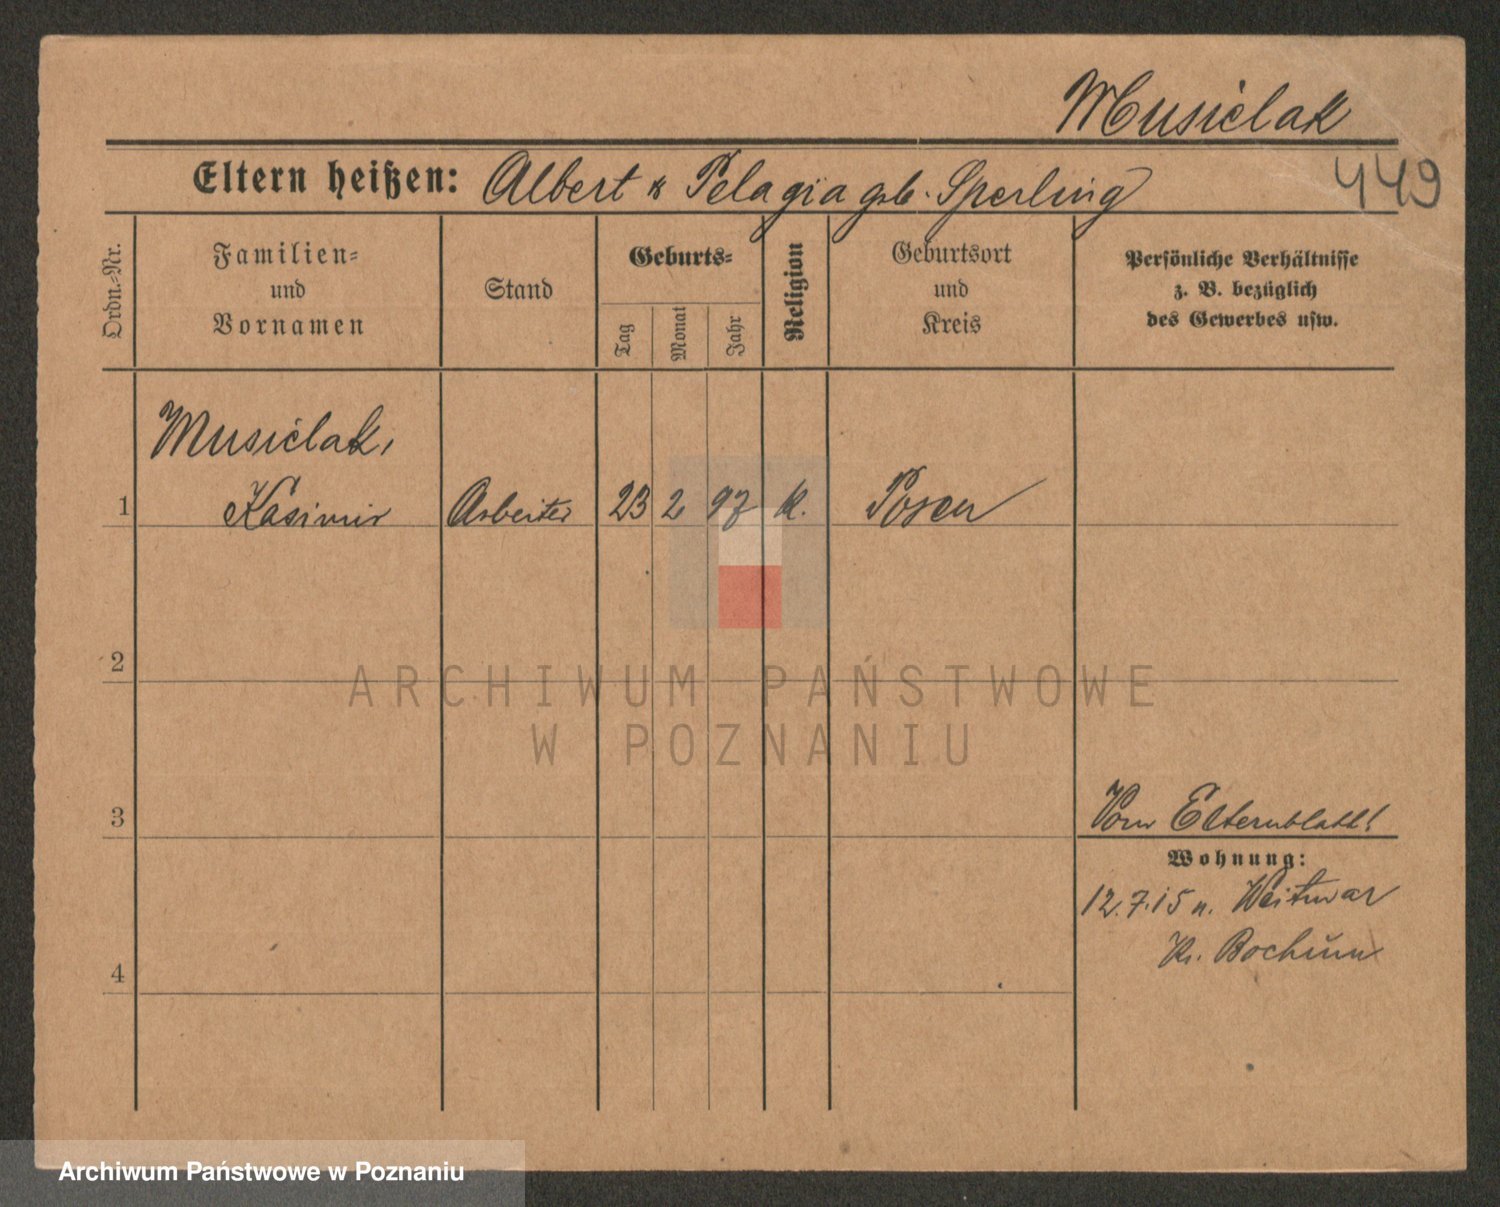 Musielak
Eltern heißen: Albert & Pelagia geb. Sperling
449
Ordn.-Nr.
Familien-
und
Vornamen
Stand
Geburts-
Tag
Monat
Jahr
Religion
Geburtsort
und
Kreis
Persönliche Verhältnisse
z. B. bezüglich
des Gewerbes usw.
Musielak,
1 Kasimir Arbeiter 23 2 97 k. Posen
2
ARCHIWUM PAŃSTWOWE
W POZNANIU
3
Vom Elternblatt!
Wohnung:
12.7.15 n. Weitmar
Kr. Bochum
4
Archiwum Państwowe w Poznaniu